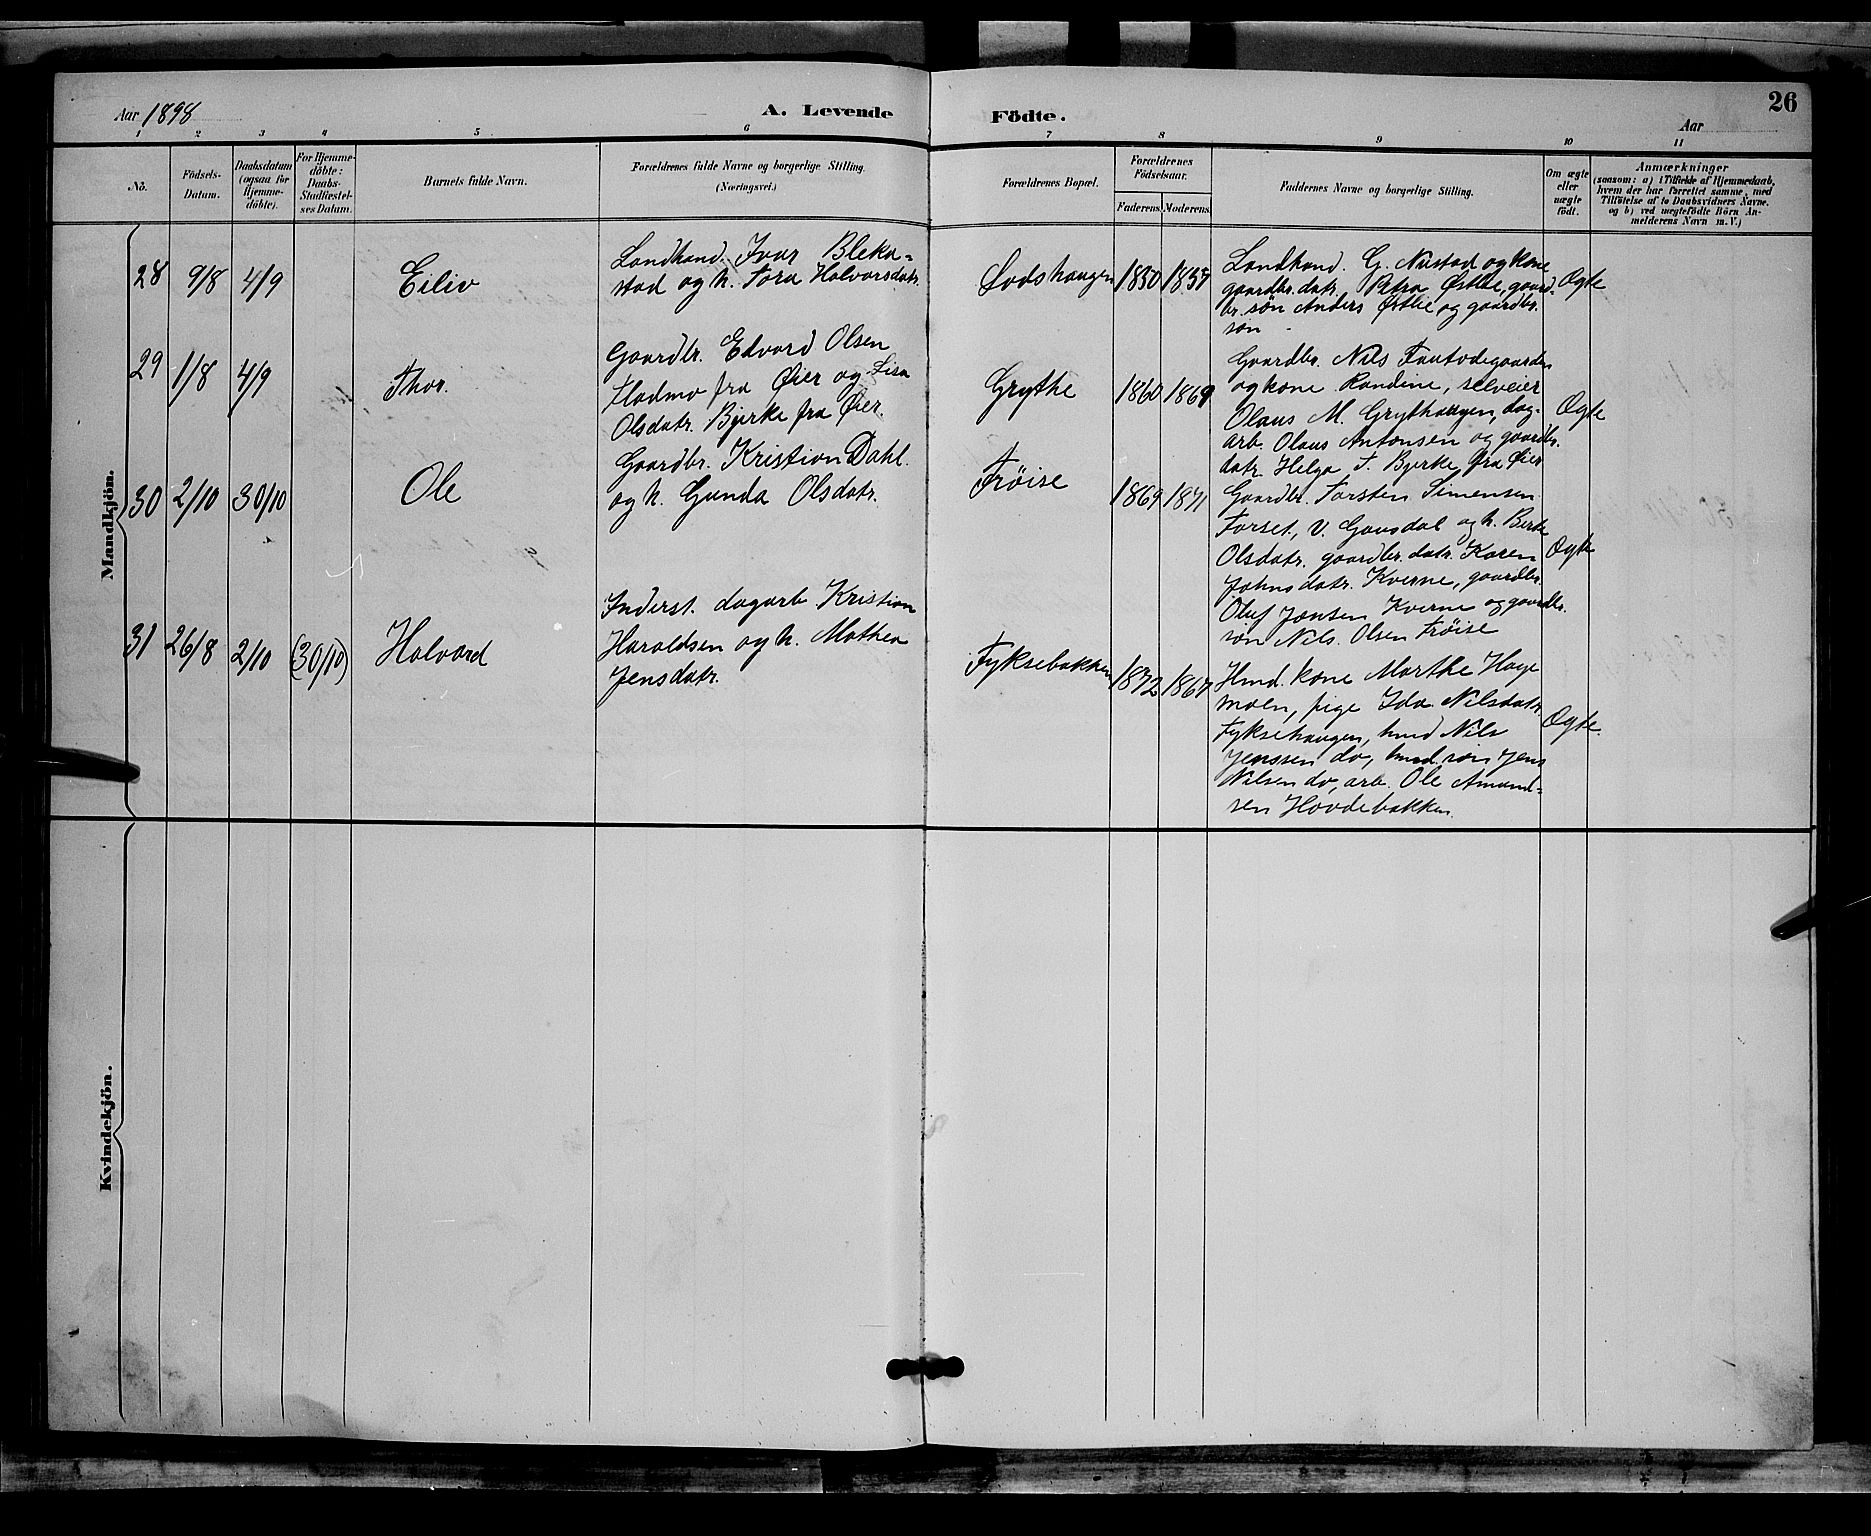 Aar 1898
A. Levende Födte.
26
Aar
1 2 3 4 5 6 7 8 9 10 11
No.
Födsels-
Datum.
Daabsdatum
(ogsaa for
Hjemme-
döbte).
For Hjemme-
döbte:
Daabs-
Stadfæstel-
ses Datum.
Barnets fulde Navn.
Forældrenes fulde Navne og borgerlige Stilling.
(Næringsvei.)
Forældrenes Bopæl.
Forældrenes
Födselsaar.
Faderens.
Moderens.
Faddernes Navne og borgerlige Stilling.
Om ægte
eller
uægte
födt.
Anmærkninger
(saasom: a) i Tilfælde af Hjemmedaab,
hvem der har forrettet samme, med
Tilföielse af to Daabsvidners Navne.
og b) ved uægtefödte Börn An-
melderens Navn m. V.)
Mandkjön.
28 9/8 4/9
Eiliv
Landhand. Ivar Bleka=
stad og h. Tora Halvorsdatr.
Lodshaugen
1850 1857
Landhand. G. Nustad og kone
gaardbr. datr. Petra Østbe, gaard-
br. søn Anders Østlie og gaardbr.
søn -
Ægte
29 1/8 4/9
Thor.
Gaardbr. Edvard Olsen
Fladmo fra Øier og Lisa
Olsdatr. Bjerke fra Øier.
Grythe
1860 1869
Gaardbr. Nils Tautodegaarden
og kone Randine, selveier
Olaus M. Grythaugen, dag-
arb. Olaus Antonsen og gaardbr.
datr. Helga T. Bjerke fra Øier
Ægte
30 2/10 30/10
Ole
Gaardbr. Kristian Dahl.
og h. Gunda Olsdatr.
Frøise
1869 1871
Gaardbr. Torsten Simensen
Forset, V. Gausdal og h. Berte
Olsdatr. gaardbr. datr. Karen
Johnsdatr. Kverne, gaardbr.
Oluf Jansen Kverne og gaardbr.
søn Nils Olsen Frøise
Ægte
31 26/8 2/10 (30/10)
Halvard
Inderst. dagarb Kristian
Haraldsen og h. Mathea
Jensdatr.
Fyksebakken
1872 1867
Hmd. kone Marthe Hage
moen, pige Ida Nilsdatr.
Fyksehaugen, hmd Nils
Jenssen do, hmd. søn Jens
Nilsen do, arb. Ole Amund=
sen Hovdebakken.
Ægte.
Kvindekjön.